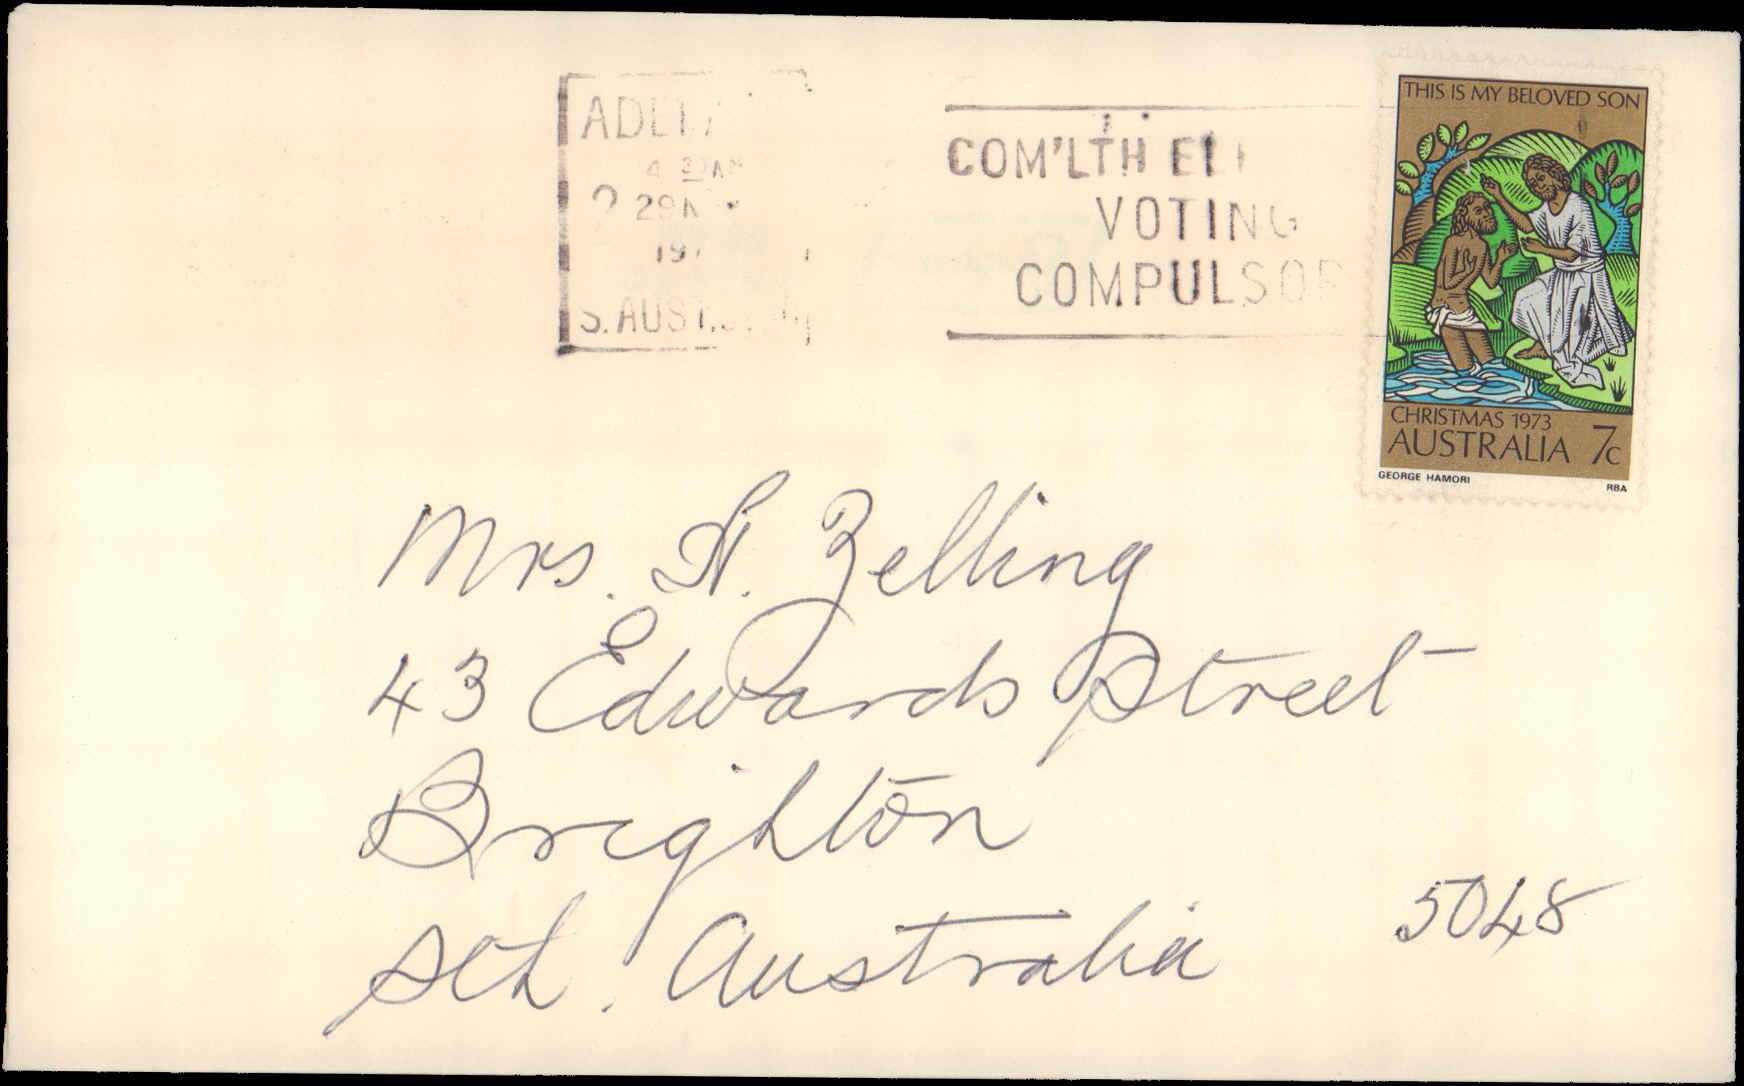 4 30 AM
29
197
S. AUST.
COM'LTH
VOTING
COMPULSOR
THIS IS MY BELOVED SON
CHRISTMAS 1973
AUSTRALIA 7c
GEORGE HAMORI RBA
Mrs. H. Zelling
43 Edwards Street
Brighton
Sth. Australia 5048